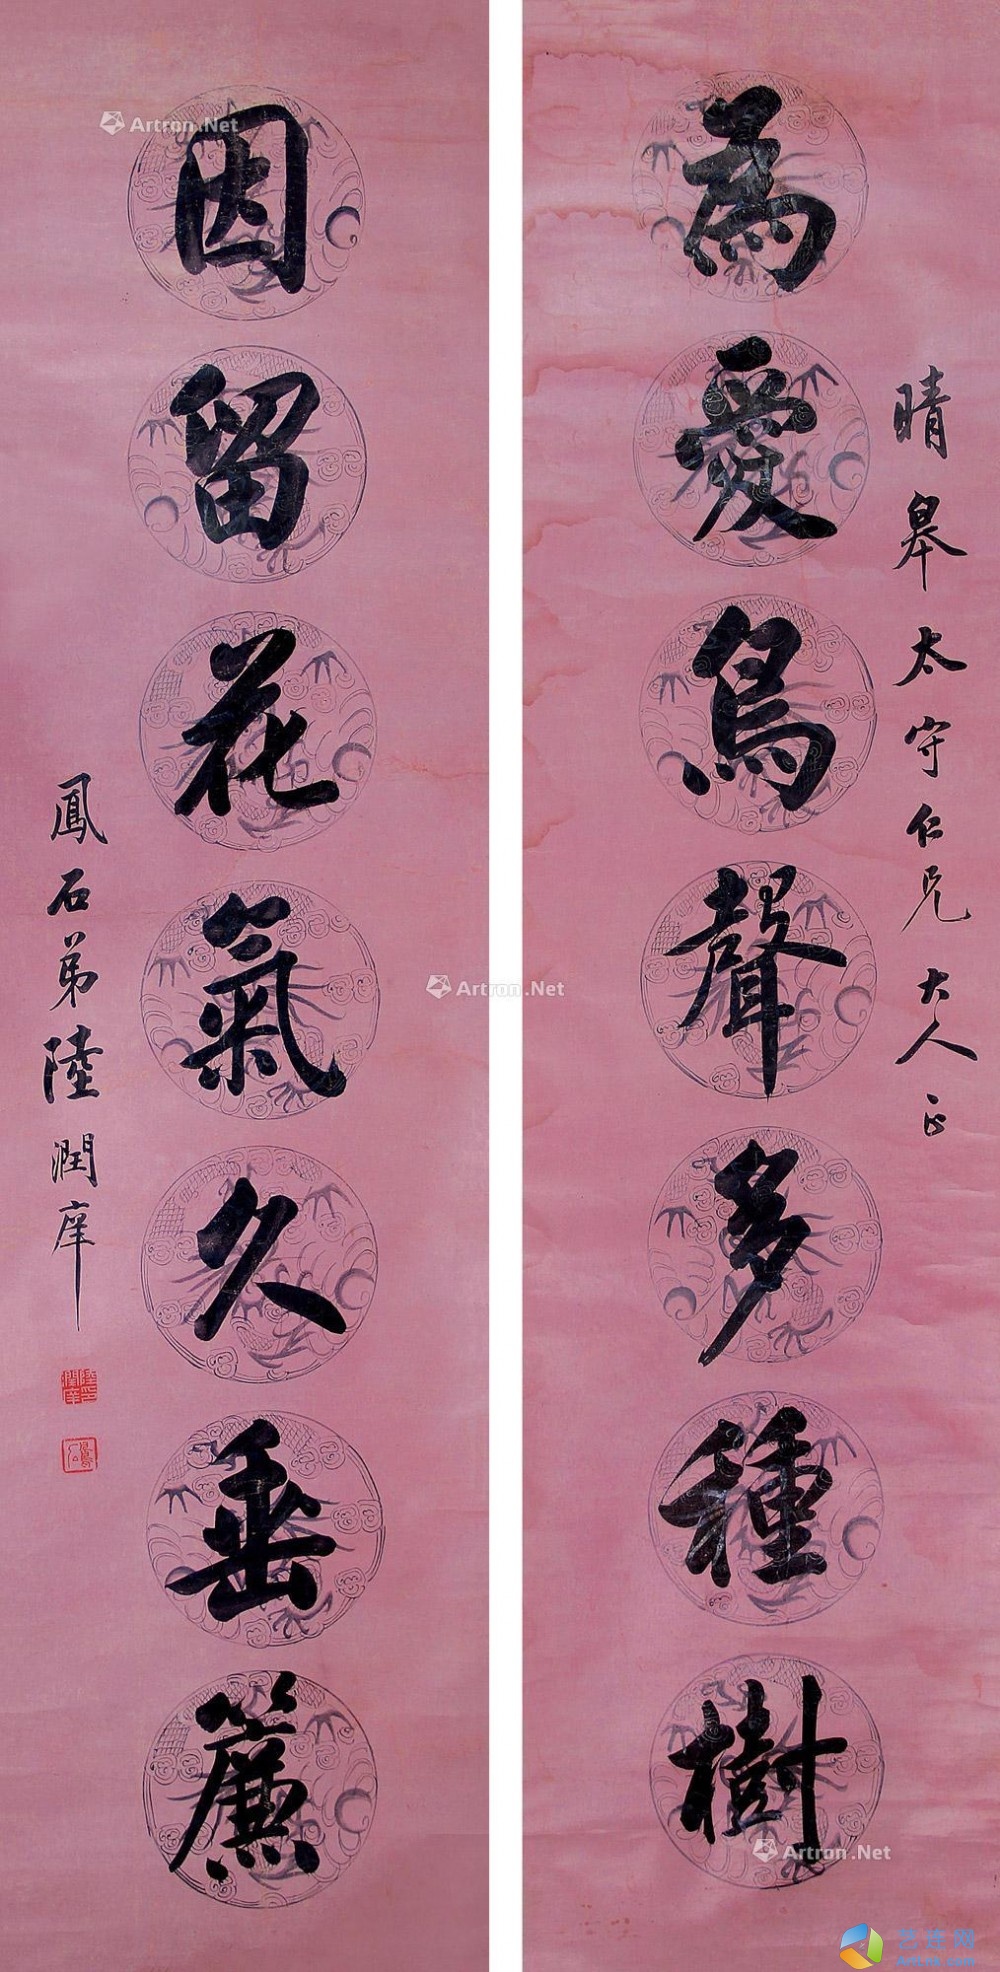 為愛鳥聲多種樹
晴皋太守仁兄大人正
因留花氣久垂簾
鳳石弟陸潤庠
陸印潤庠
鳳石
Artron.Net
Artron.Net
Artron.Net
艺连网
ArtLie.com